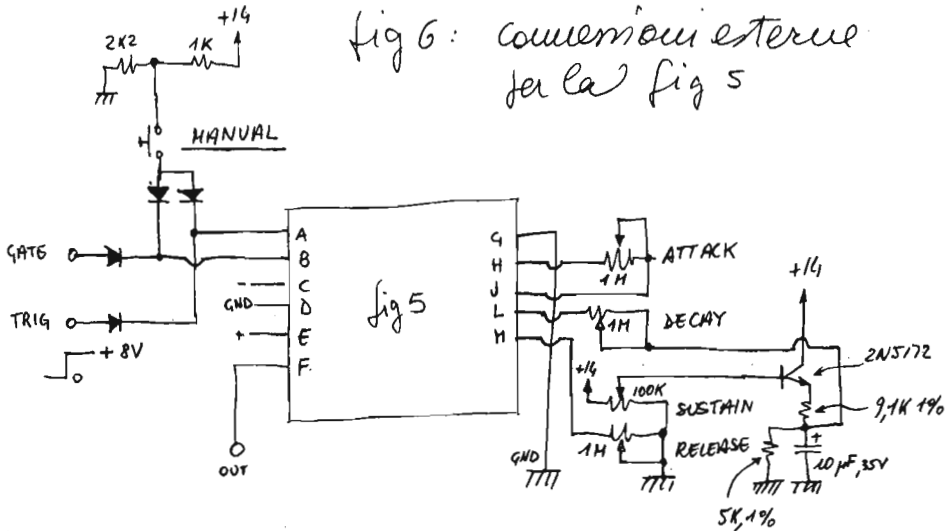 fig 6: connessioni esterne
per la fig 5
+14
2K2
1K
MANUAL
GATE
TRIG
+ 8V
A
B
- C
GND D
+ E
F.
OUT
fig 5
G
H
J
L
M
1M
ATTACK
1M
DECAY
+14
100K
SUSTAIN
1M
RELEASE
GND
+14
2N5172
9,1K 1%
+
10 µF, 35V
5K, 1%